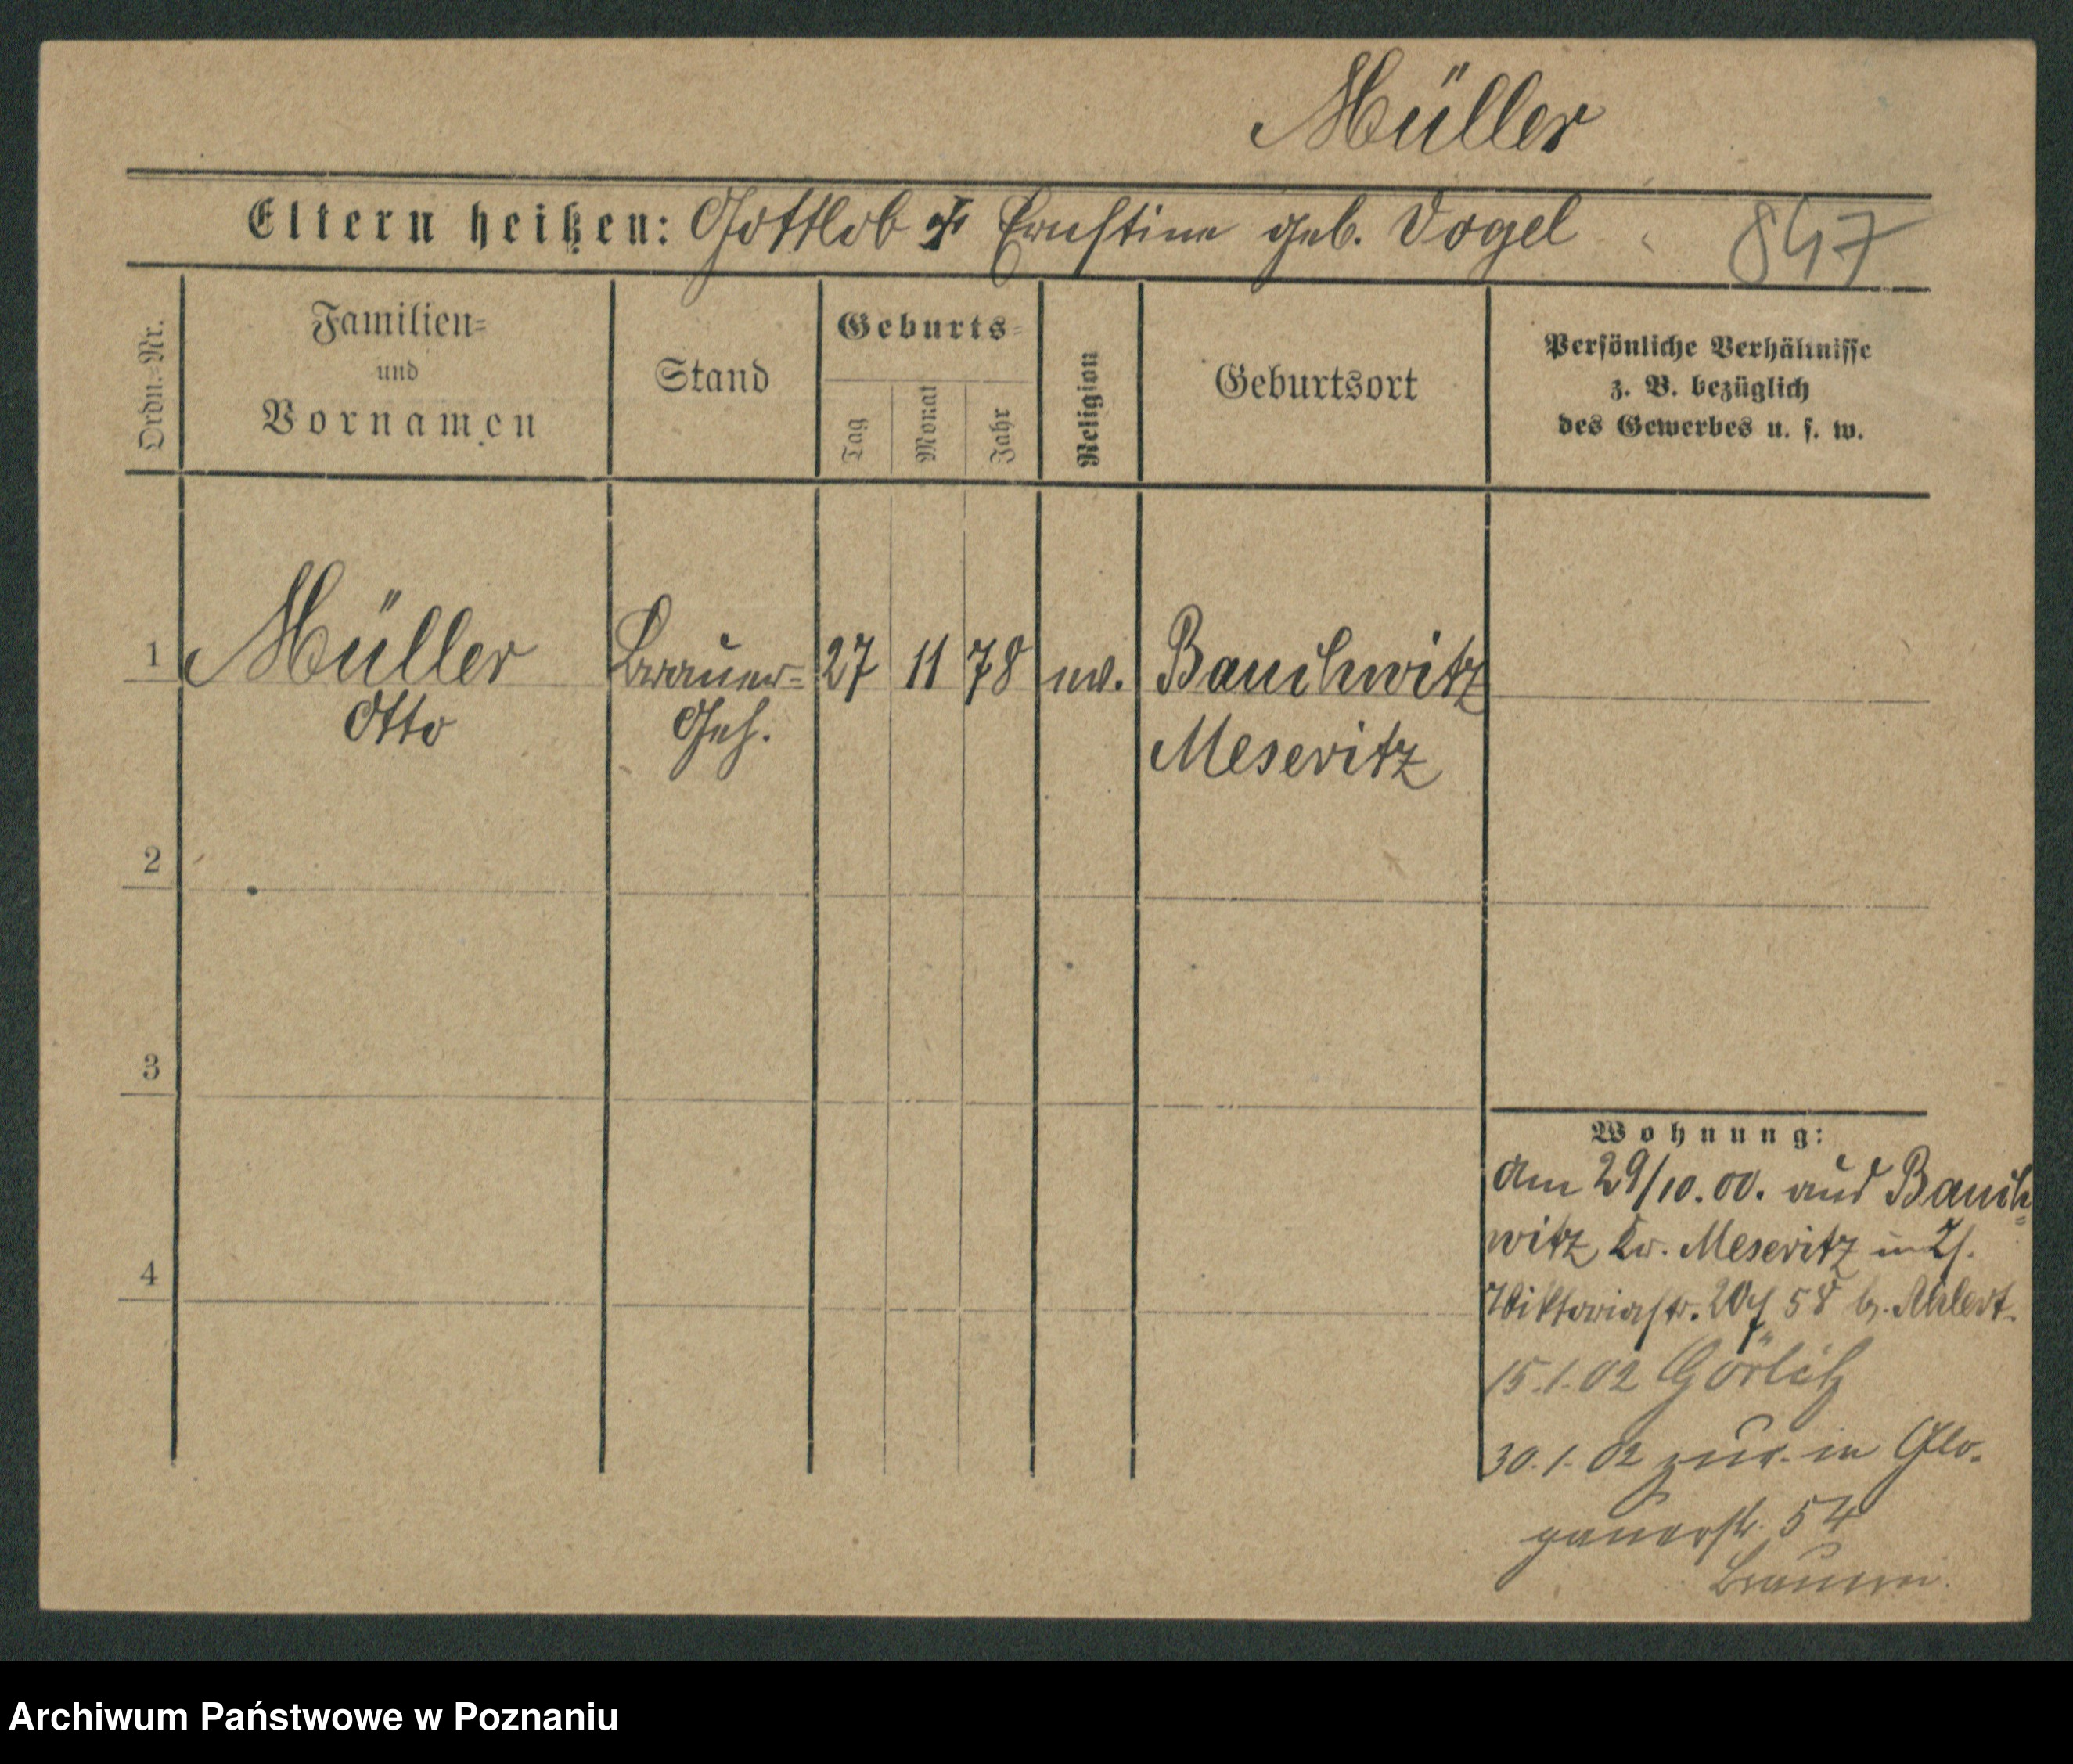 Müller
Eltern heißen: Gottlob u. Ernstine geb. Vogel 847
Ordn.=Nr.
Familien=
und
Vornamen
Stand
Geburts=
Tag
Monat
Jahr
Religion
Geburtsort
Persönliche Verhältnisse
z. B. bezüglich
des Gewerbes u. s. w.
1 Müller Brauer= 27 11 78 ev. Bauchwitz
Otto Geh. Meseritz
2
3
4
Wohnung:
Am 29/10.00. aus Bauch=
witz, Kr. Meseritz in
Viktoriastr. 20 58 b. Ahlert.
15.1.02 Görlitz
30.1.02 zur. in Glo-
gauerstr. 54
Brauerei.
Archiwum Państwowe w Poznaniu